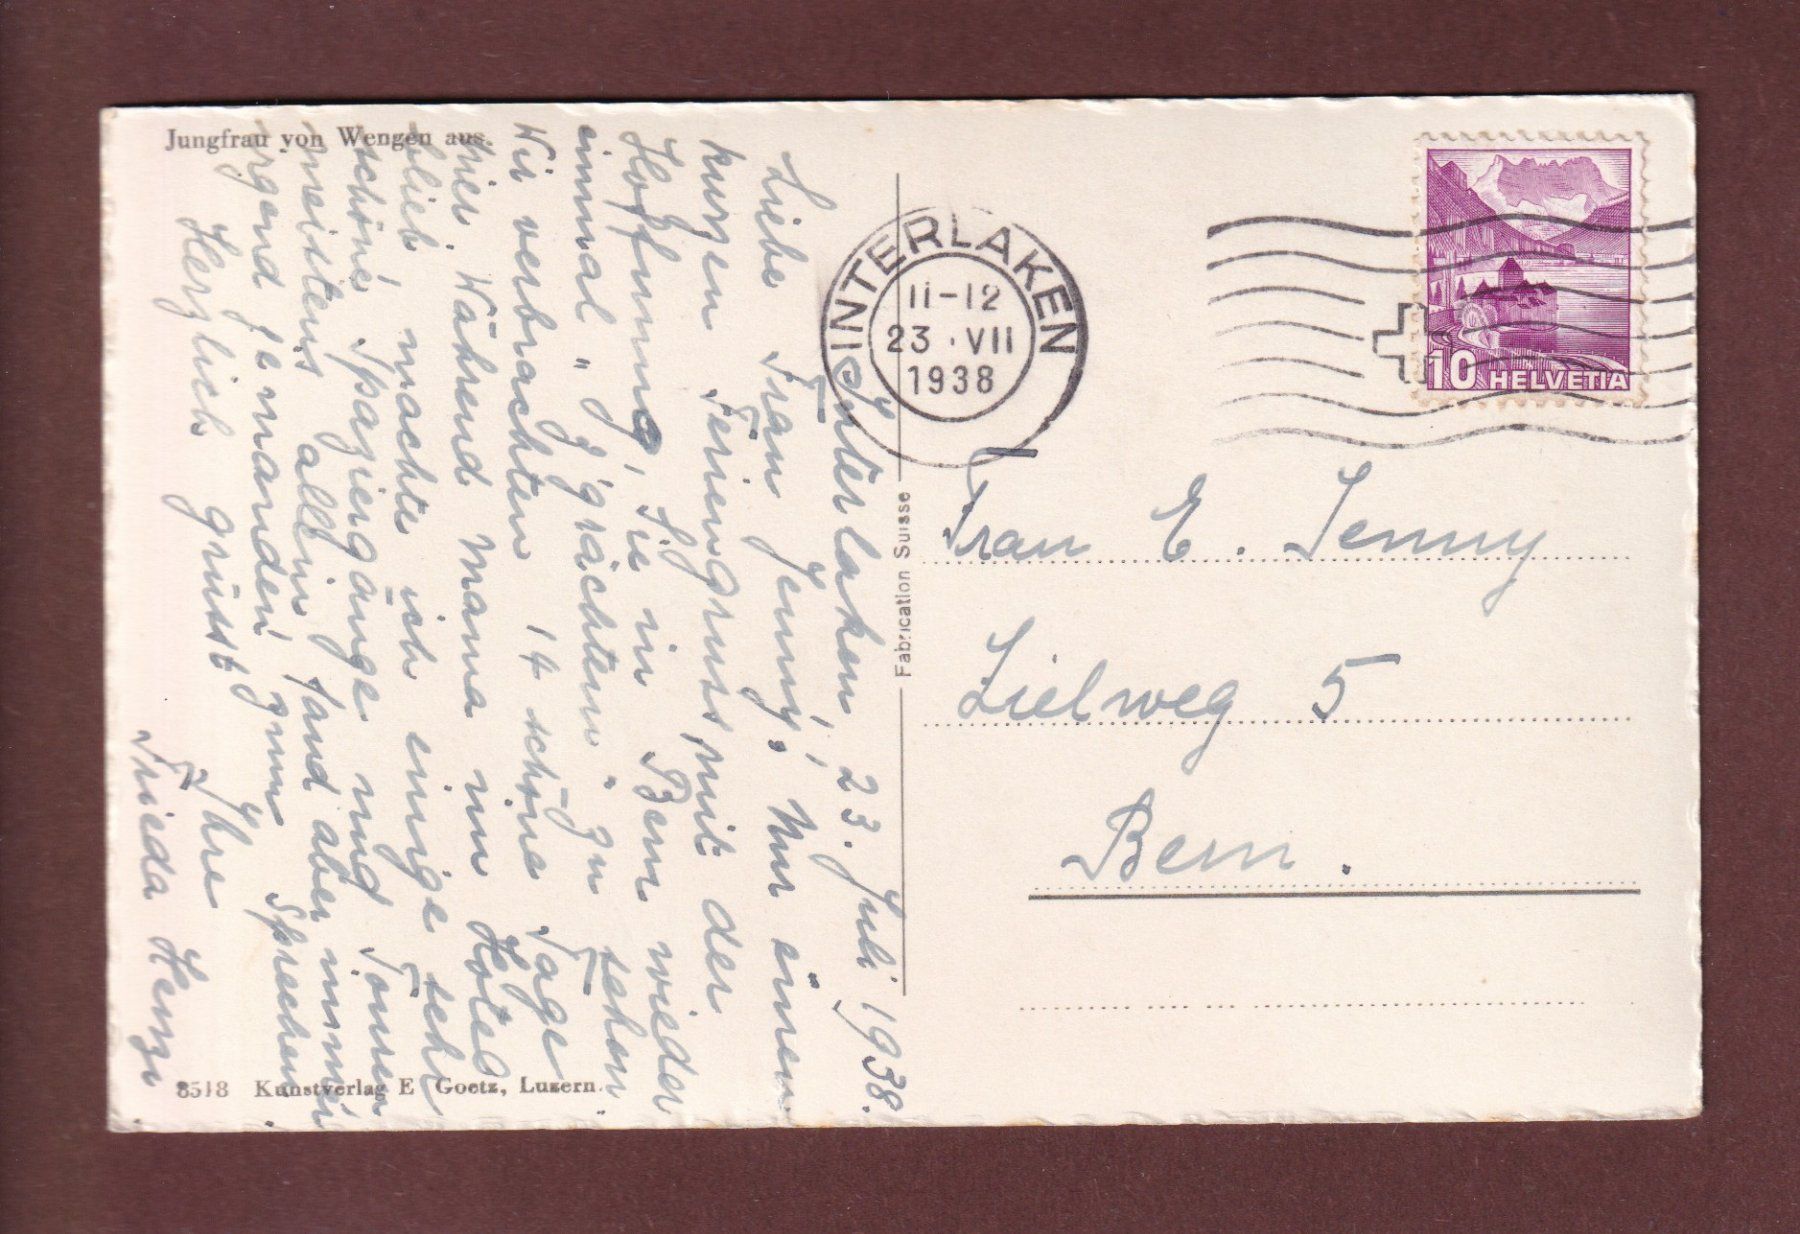 Jungfrau von Wengen aus.
Interlaken, 23. Juli 1938.
Liebe Frau Jenny! Nur einen
kurzen Feriengruss mit der
Hoffnung, Sie in Bern wieder
einmal "z'grächtem" zu sehen
Wir verbrachten 14 schöne Tage
hier. Während Mama im Hotel
blieb, machte ich einige sehr
schöne Spaziergänge und Touren
meistens allein, fand aber immer
irgend jemanden zum Sprechen
Herzlich grüsst Ihre
Frieda Henzi
8518 Kunstverlag E Goetz, Luzern.
Fabrication Suisse
INTERLAKEN
11-12
23 . VII
1938
10 HELVETIA
Frau E. Jenny
Zielweg 5
Bern.